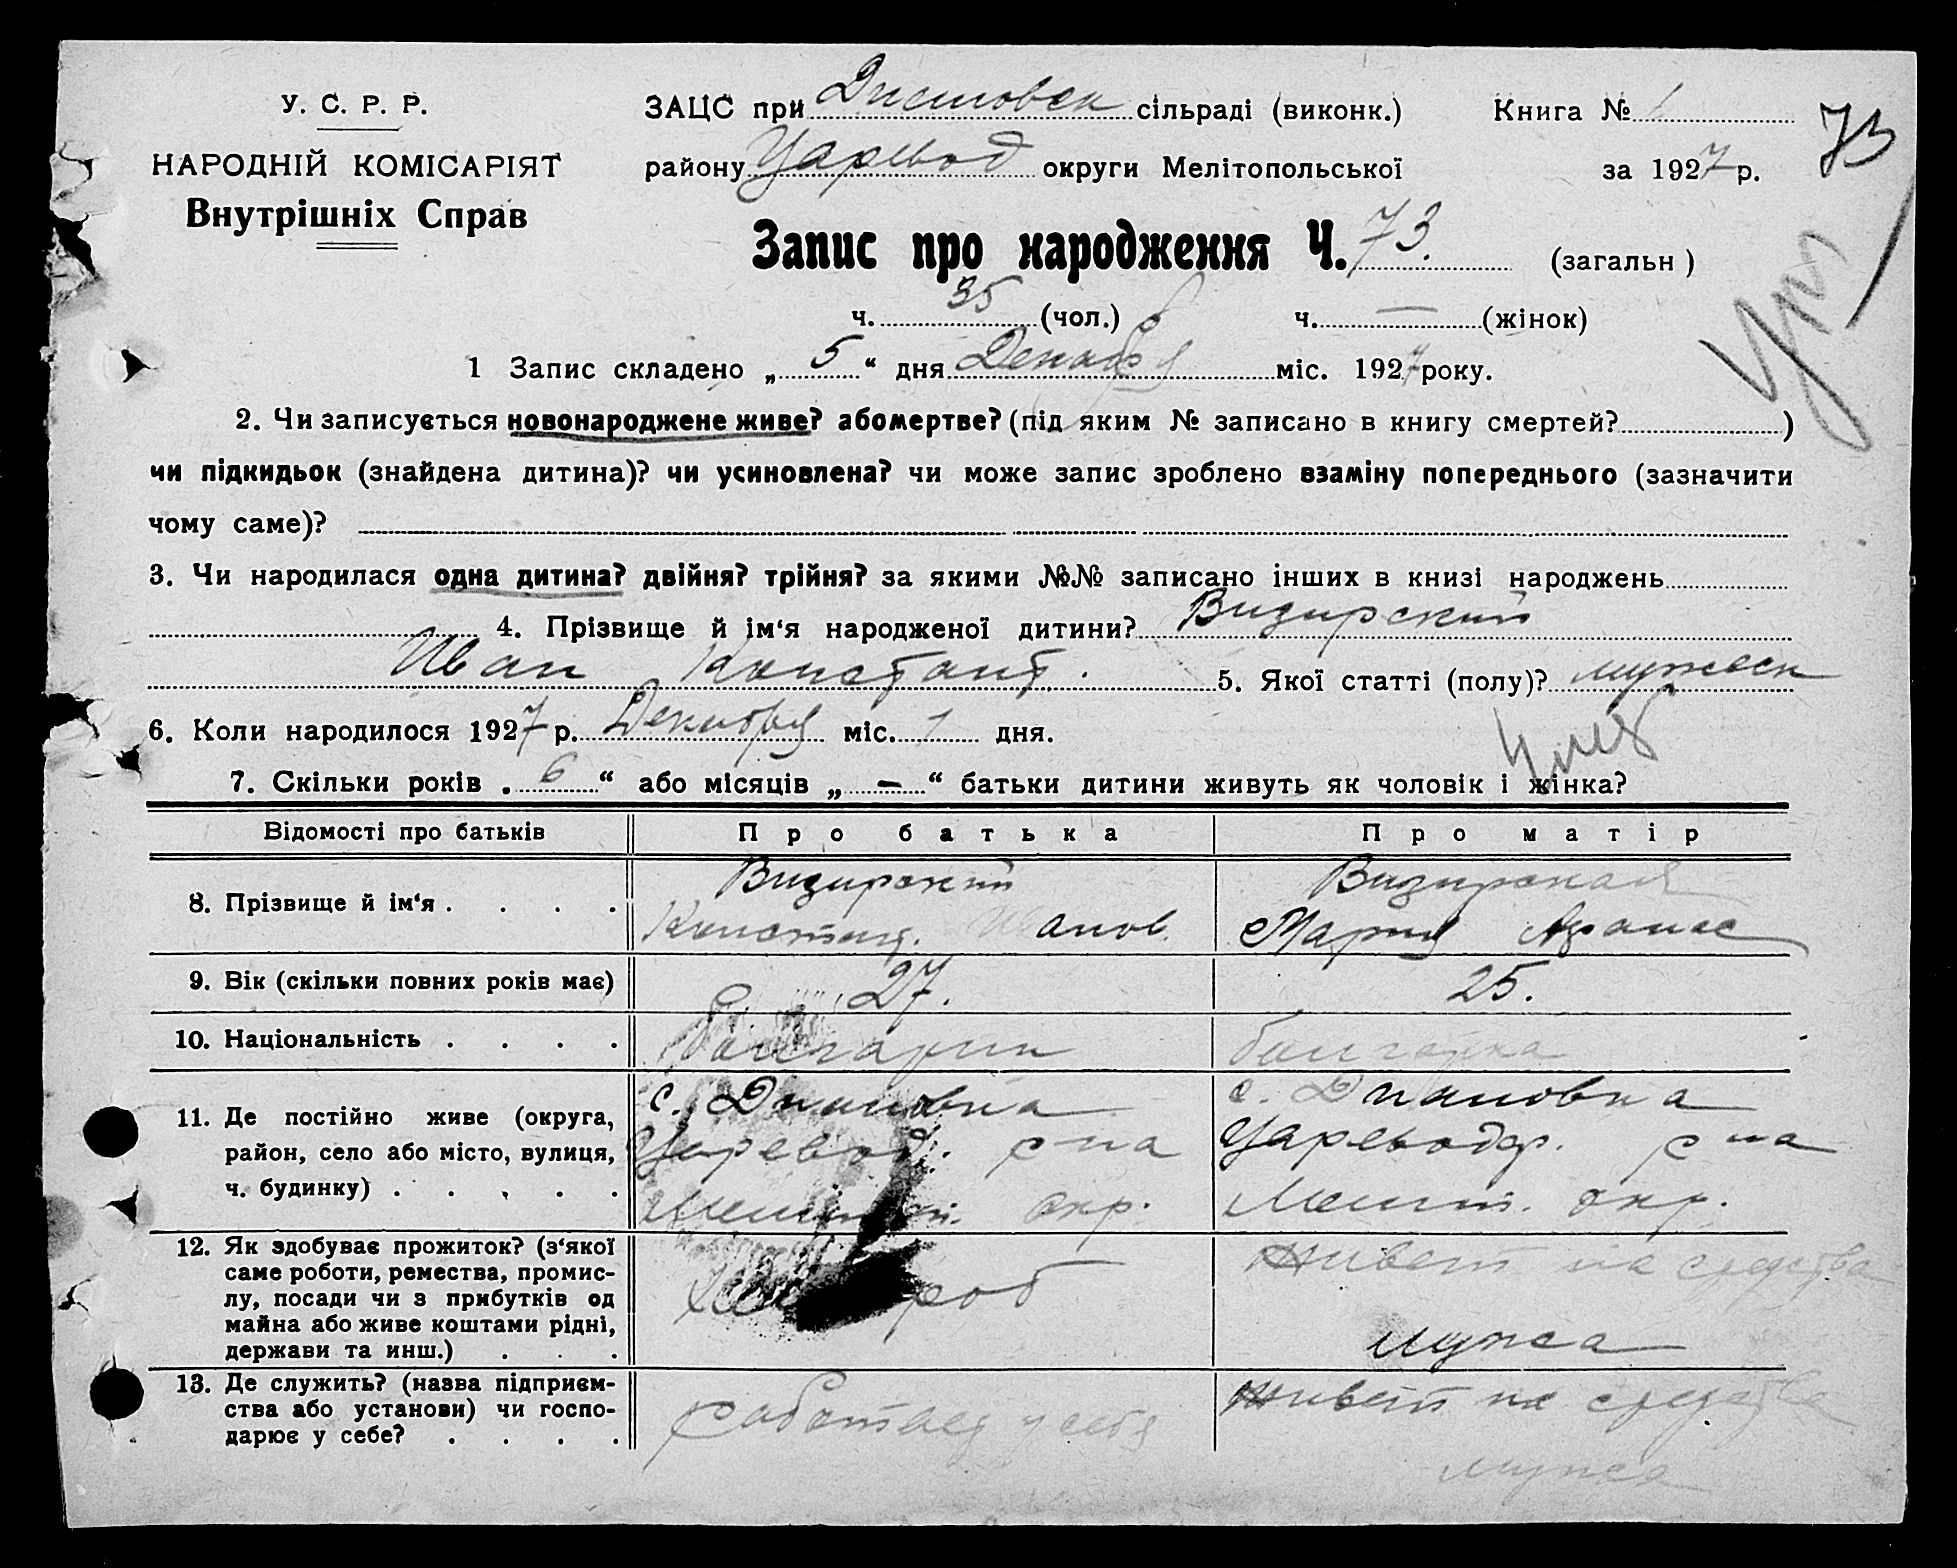 У. С. Р. Р.
НАРОДНІЙ КОМІСАРІЯТ
Внутрішніх Справ
ЗАЦС при сільраді (виконк.) Книга № 1
73
району Царевод округи Мелітопольської за 1927 р.
Запис про народження Ч. 73. (загальн )
ч. 35 (чол.) ч. — (жінок)
1 Запис складено „ 5 “ дня Декабря міс. 1927 року.
2. Чи записується новонароджене живе? або мертве? (під яким № записано в книгу смертей? )
чи підкидьок (знайдена дитина)? чи усиновлена? чи може запис зроблено взаміну попереднього (зазначити
чому саме)?
3. Чи народилася одна дитина? двійня? трійня? за якими №№ записано інших в книзі народжень
4. Прізвище й ім‘я народженої дитини? Визирский
Иван Констант. 5. Якої статті (полу)? мужеск
6. Коли народилося 1927 р. Декабря міс. 1 дня.
7. Скільки років „ 6 “ або місяців „ — “ батьки дитини живуть як чоловік і жінка?
Відомості про батьків Про батька Про матір
8. Прізвище й ім‘я . . . . Визирский Визирская
Констант. Иванов. Мария Афанас
9. Вік (скільки повних років має) 27. 25.
10. Національність . . . . болгарин болгарка
11. Де постійно живе (округа, район, село або місто, вулиця, ч. будинку) . . . . .
с. Диановка с. Диановка
Царевод. р-на Цареводр. р-на
Мелит. окр. Мелит. окр.
12. Як здобуває прожиток? (з‘якої саме роботи, ремества, промислу, посади чи з прибутків од майна або живе коштами рідні, держави та инш.) . . .
хлебороб живет на средства
мужа
13. Де служить? (назва підприємства або установи) чи господарює у себе? . . . .
работает у себя живет на средства
мужа